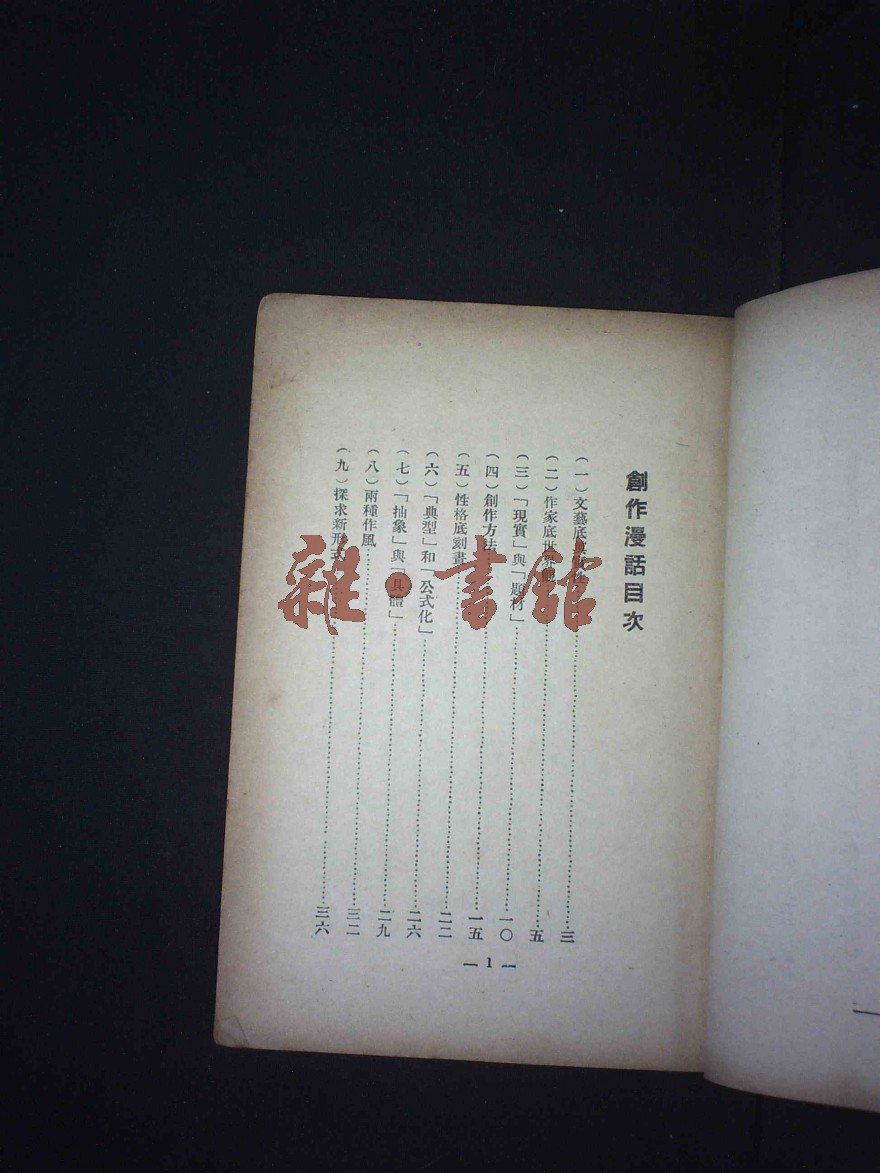 創作漫話目次
(一)文藝底 三
(二)作家底世界觀 五
(三)「現實」與「題材」 一〇
(四)創作方法 一五
(五)性格底刻畫 二二
(六)「典型」和「公式化」 二六
(七)「抽象」與「具體」 二九
(八)兩種作風 三二
(九)探求新形式 三六
— 1 —
雜·書館